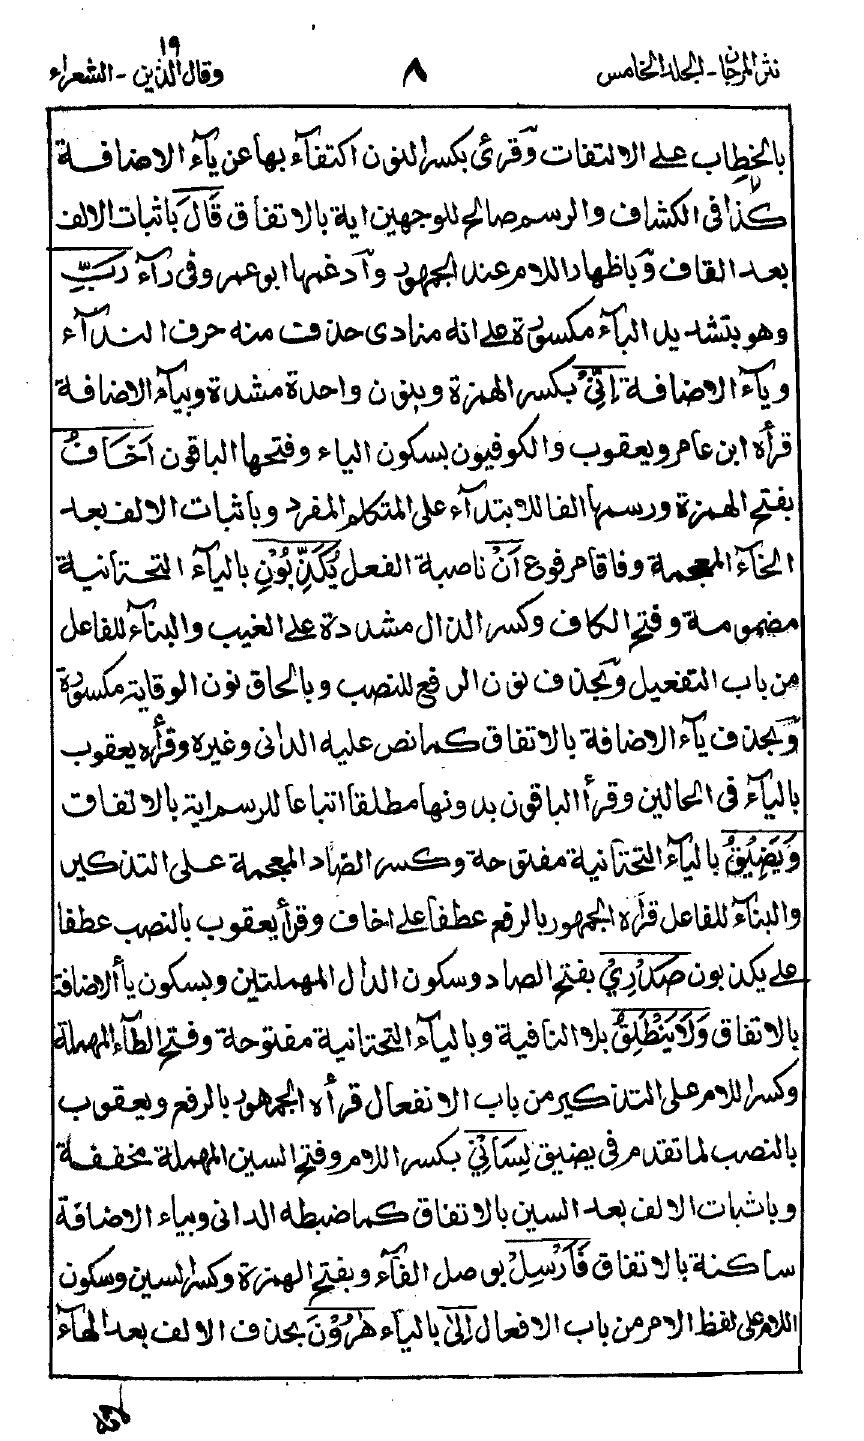 نثر المرجان - المجلد الخامس
٨
١٩
وقال الذين - الشعراء
بالخطاب على الالتفات وقرئ بكسر النون اكتفآء بها عن يآء الاضافة
كذا فى الكشاف والرسم صالح للوجهين اية بالاتفاق قَالَ باثبات الالف
بعد القاف وباظهار اللام عند الجمهور وآدغمها ابو عمرو فى رآء رَبِّ
وهو بتشديد البآء مكسورة على انه منادى حذفت منه حرف الندآء
ويآء الاضافة اِنِّيْ بكسر الهمزة وبنون واحدة مشددة وبيآء الاضافة
قرأه ابن عامر ويعقوب والكوفيون بسكون الياء وفتحها الباقون اَخَافُ
بفتح الهمزة ورسمها الفا للابتدآء على المتكلم المفرد وباثبات الالف بعد
الخآء المعجمة وفاقا مرفوع اَنْ ناصبة الفعل يُكَذِّبُوْنِ باليآء التحتانية
مضمومة وفتح الكاف وكسر الذال مشددة على الغيب والبنآء للفاعل
من باب التفعيل وبحذف نون الرفع للنصب وبالحاق نون الوقاية مكسورة
وبحذف يآء الاضافة بالاتفاق كما نص عليه الدانى وغيره وقرأه يعقوب
باليآء فى الحالين وقرأ الباقون بدونها مطلقا اتباعا للرسم اية بالاتفاق
وَيَضِيْقُ باليآء التحتانية مفتوحة وكسر الضاد المعجمة على التذكير
والبنآء للفاعل قرأه الجمهور بالرفع عطفا على اخاف وقرأ يعقوب بالنصب عطفا
على يكذبون صَدْرِيْ بفتح الصاد وسكون الدال المهملتين وبسكون يآ الاضافة
بالاتفاق وَلَا يَنْطَلِقُ بلا النافية وباليآء التحتانية مفتوحة وفتح الطآء المهملة
وكسر اللام على التذكير من باب الانفعال قرأه الجمهور بالرفع ويعقوب
بالنصب لما تقدم فى يضيق لِسَانِيْ بكسر اللام وفتح السين المهملة مخففة
وباثبات الالف بعد السين بالاتفاق كما ضبطه الدانى وبياء الاضافة
ساكنة بالاتفاق فَاَرْسِلْ بوصل الفآء وبفتح الهمزة وكسر السين وسكون
اللام على لفظ الامر من باب الافعال اِلٰى باليآء هٰرُوْنَ بحذف الالف بعد الهآء